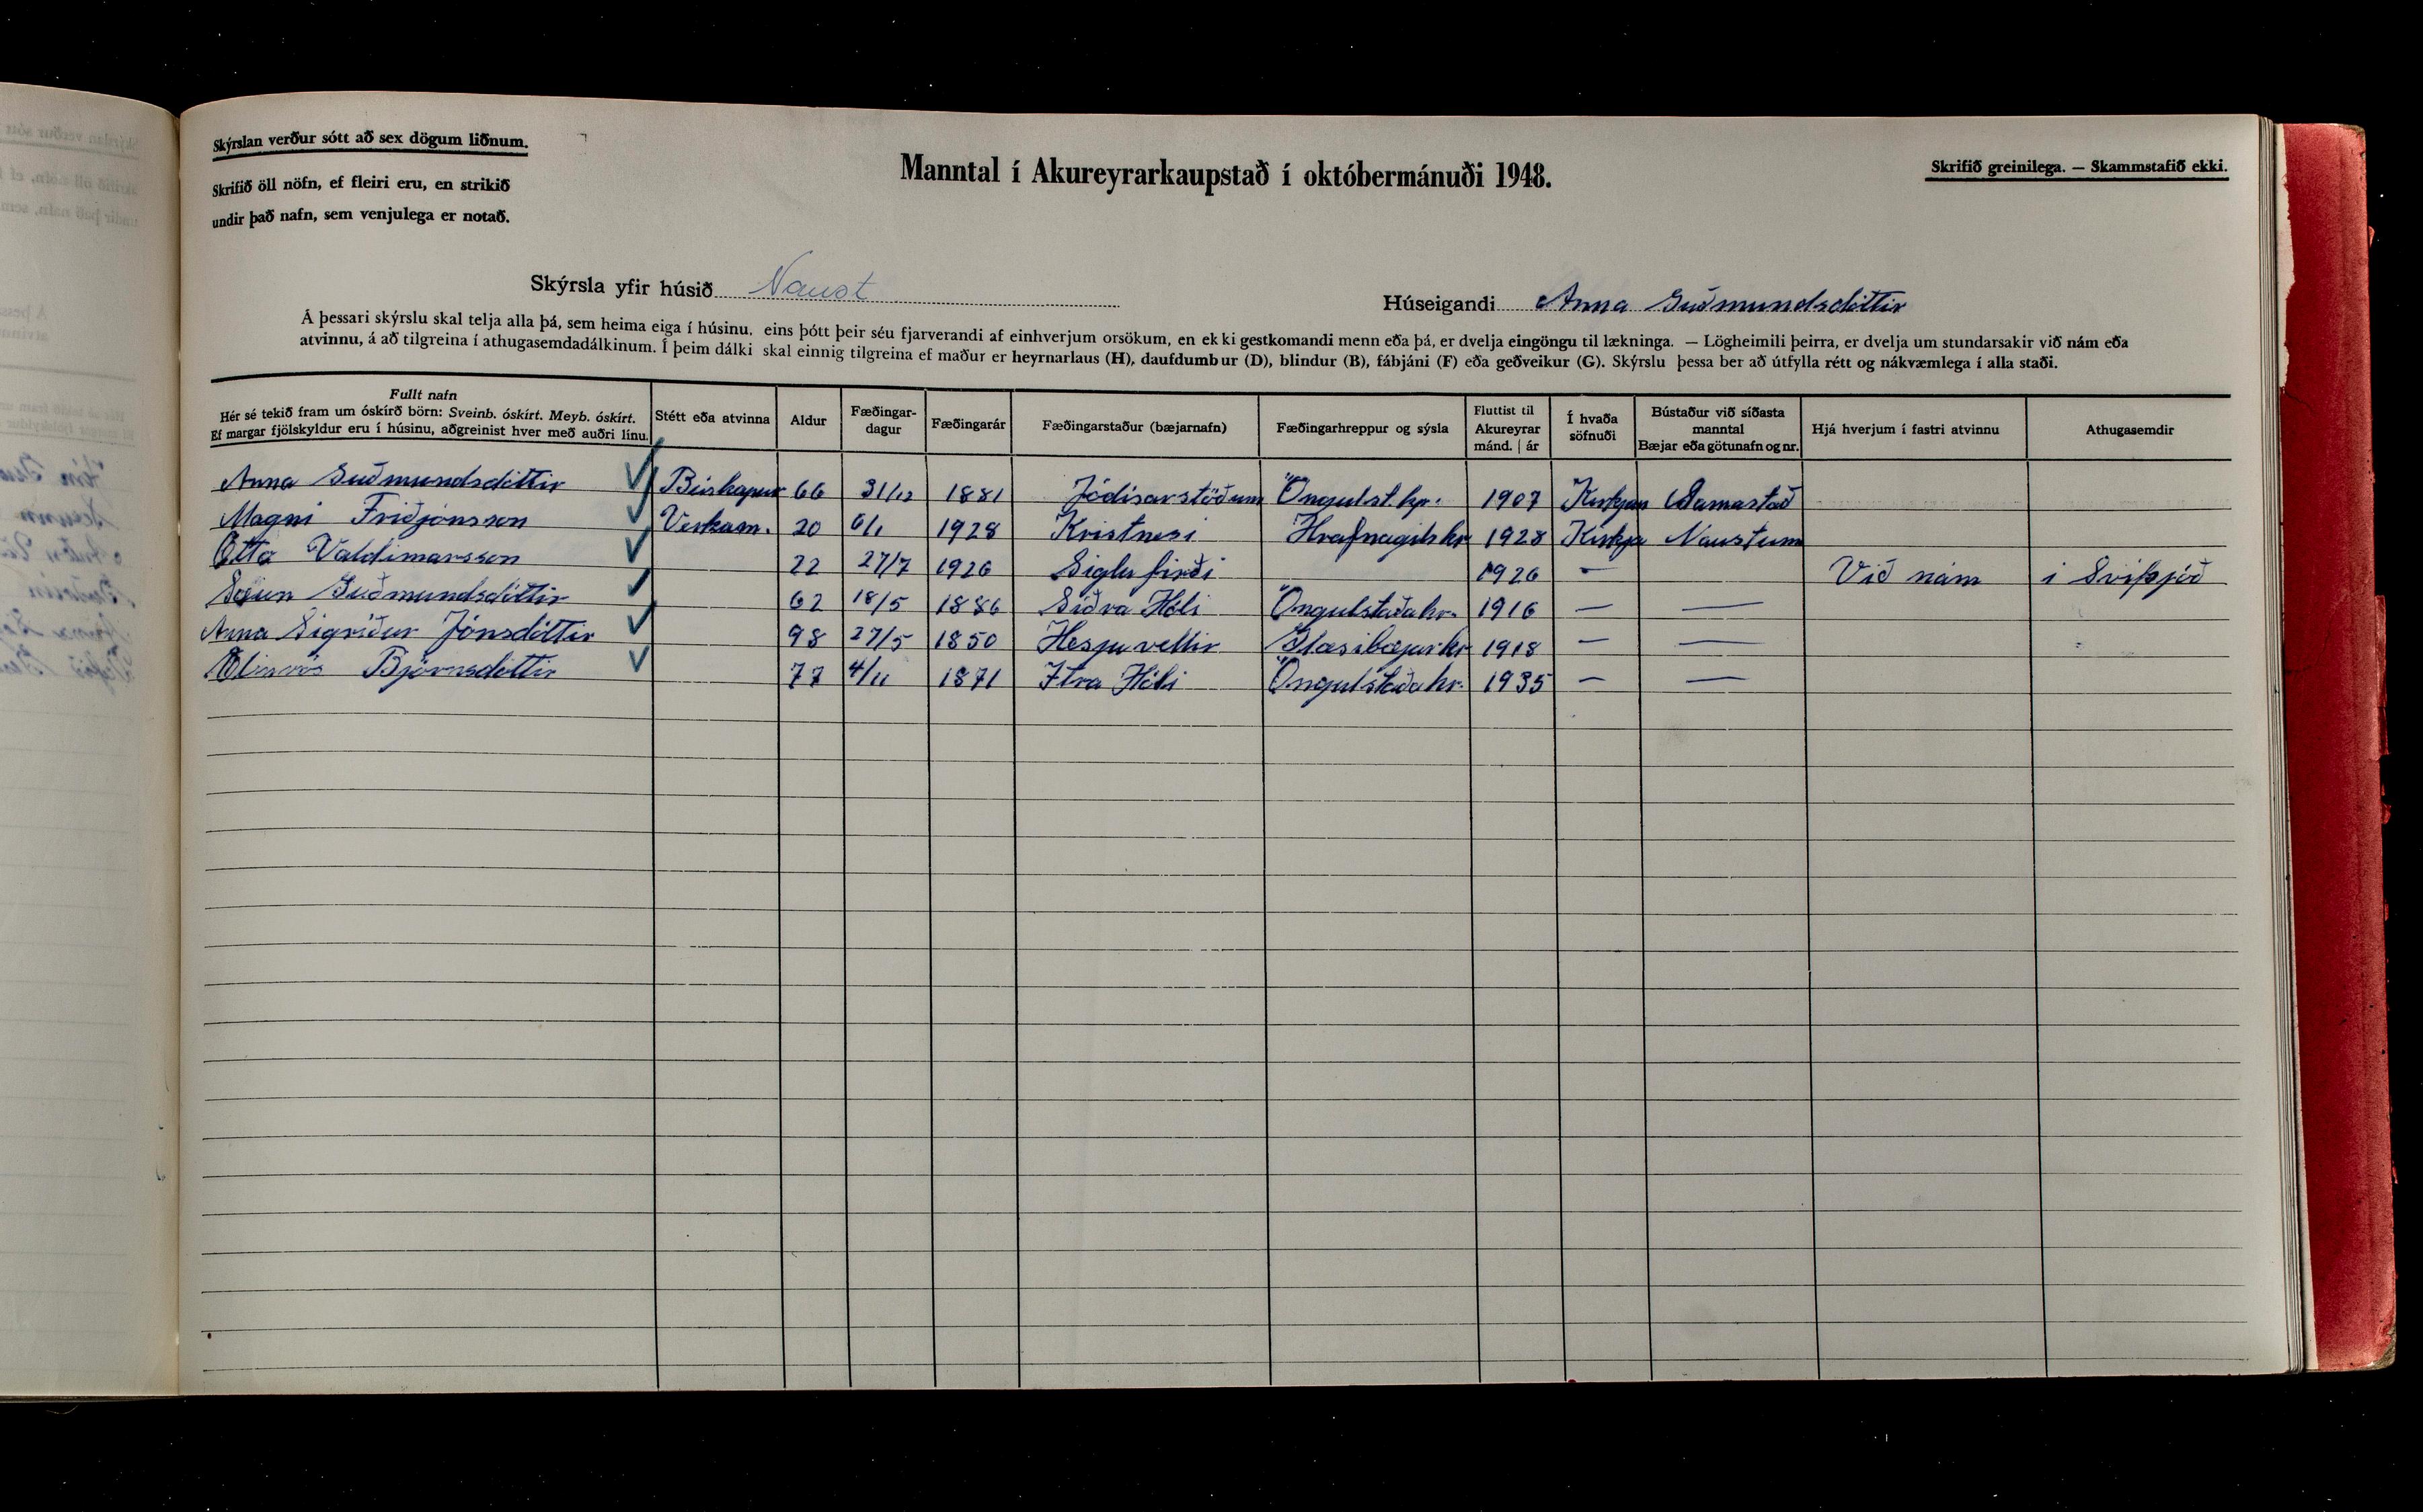 Skýrslan verður sótt að sex dögum liðnum.
Skrifið öll nöfn, ef fleiri eru, en strikið
undir það nafn, sem venjulega er notað.
Manntal í Akureyrarkaupstað í októbermánuði 1948.
Skrifið greinilega. — Skammstafið ekki.
Skýrsla yfir húsið Naust
Húseigandi Anna Guðmundsdóttir
Á þessari skýrslu skal telja alla þá, sem heima eiga í húsinu, eins þótt þeir séu fjarverandi af einhverjum orsökum, en ekki gestkomandi menn eða þá, er dvelja eingöngu til lækninga. — Lögheimili þeirra, er dvelja um stundarsakir við nám eða
atvinnu, á að tilgreina í athugasemdadálkinum. Í þeim dálki skal einnig tilgreina ef maður er heyrnarlaus (H), daufdumbur (D), blindur (B), fábjáni (F) eða geðveikur (G). Skýrslu þessa ber að útfylla rétt og nákvæmlega í alla staði.
Fullt nafn
Hér sé tekið fram um óskírð börn: Sveinb. óskírt. Meyb. óskírt.
Ef margar fjölskyldur eru í húsinu, aðgreinist hver með auðri línu.
Stétt eða atvinna
Aldur
Fæðingar-
dagur
Fæðingarár
Fæðingarstaður (bæjarnafn)
Fæðingarhreppur og sýsla
Fluttist til
Akureyrar
mánd. | ár
Í hvaða
söfnuði
Bústaður við síðasta
manntal
Bæjar eða götunafn og nr.
Hjá hverjum í fastri atvinnu
Athugasemdir
Anna Guðmundsdóttir Búskapur 66 31/12 1881 Jódisarstöðum Öngulst.hr. 1907 Kirkjan
Magni Friðjónsson Verkam. 20 6/1 1928 Kristnesi Hrafnagilshr 1928 Kirkja Naustum
Otto Valdimarsson 22 27/7 1926 Siglufirði 1926 — Við nám i Svíþjóð
Guðmundsdóttir 62 18/5 1886 Siðra Hóli Öngulstaðahr. 1916 — —
Anna Sigríður Jónsdóttir 98 27/5 1850 Hesjuvellir Glæsibæjarhr 1918 — —
Björnsdóttir 77 4/11 1871 Itra Hóli Öngulstaðahr. 1935 — —